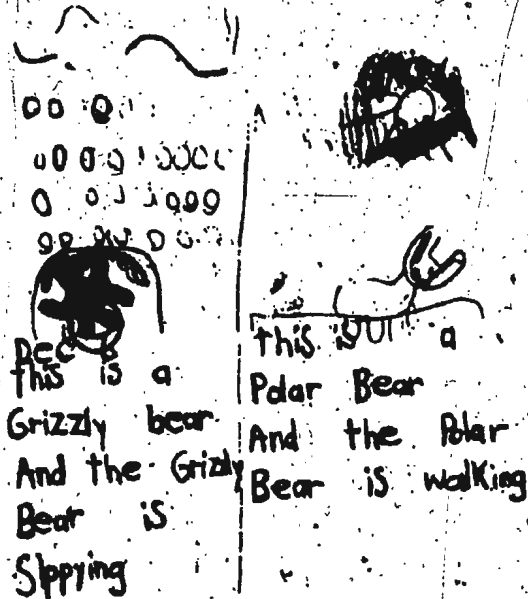 Dec 8
this is a
Grizzly bear
And the Grizzly
Bear is
Slppying
this is a
Polar Bear
And the Polar
Bear is walking